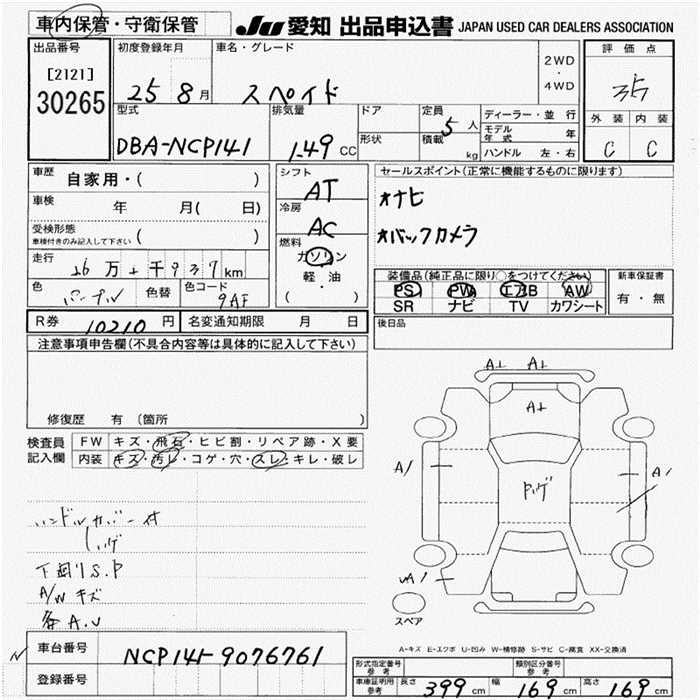 車内保管・守衛保管
JU 愛知 出品申込書 JAPAN USED CAR DEALERS ASSOCIATION
出品番号 初度登録年月 車名・グレード 評価点
[2121] 2WD
30265 25 8月 スペイド ・
4WD 35
型式 排気量 ドア 定員 5人 ディーラー・並行 外装 内装
DBA-NCP141 1.49 CC 形状 積載 kg モデル年式 年
ハンドル 左・右 C C
車歴 自家用・( ) シフト AT セールスポイント(正常に機能するものに限ります)
車検 年 月( 日) 冷房 AC オナビ
受検形態 ( ) 燃料 オバックカメラ
車検付きのみ記入して下さい ガソリン
走行 万 千 937 km 軽・油 装備品(純正品に限り○をつけてください) 新車保証書
色 パープル 色替 色コード 9AF ( ) PS PW エアB AW 有・無
SR ナビ TV カワシート
R券 10210 円 名変通知期限 月 日 後日品
注意事項申告欄(不具合内容等は具体的に記入して下さい)
修復歴 有 (箇所 )
検査員 FW キズ・飛石・ヒビ割・リペア跡・X要
記入欄 内装 キズ・汚レ・コゲ・穴・スレ・キレ・破レ
A1 A1
A1
A/ A/
ハンドルカバー付
シゲ
下廻りS.P
A/W キズ
各A.U
A/
スペア
A-キズ E-エクボ U-凹み W-補修跡 S-サビ C-腐食 XX-交換済
車台番号 NCP141-9076761
登録番号
形式指定番号 参考 類別区分番号 参考
車庫証明用 参考 長さ 399 cm 幅 169 cm 高さ 169 cm